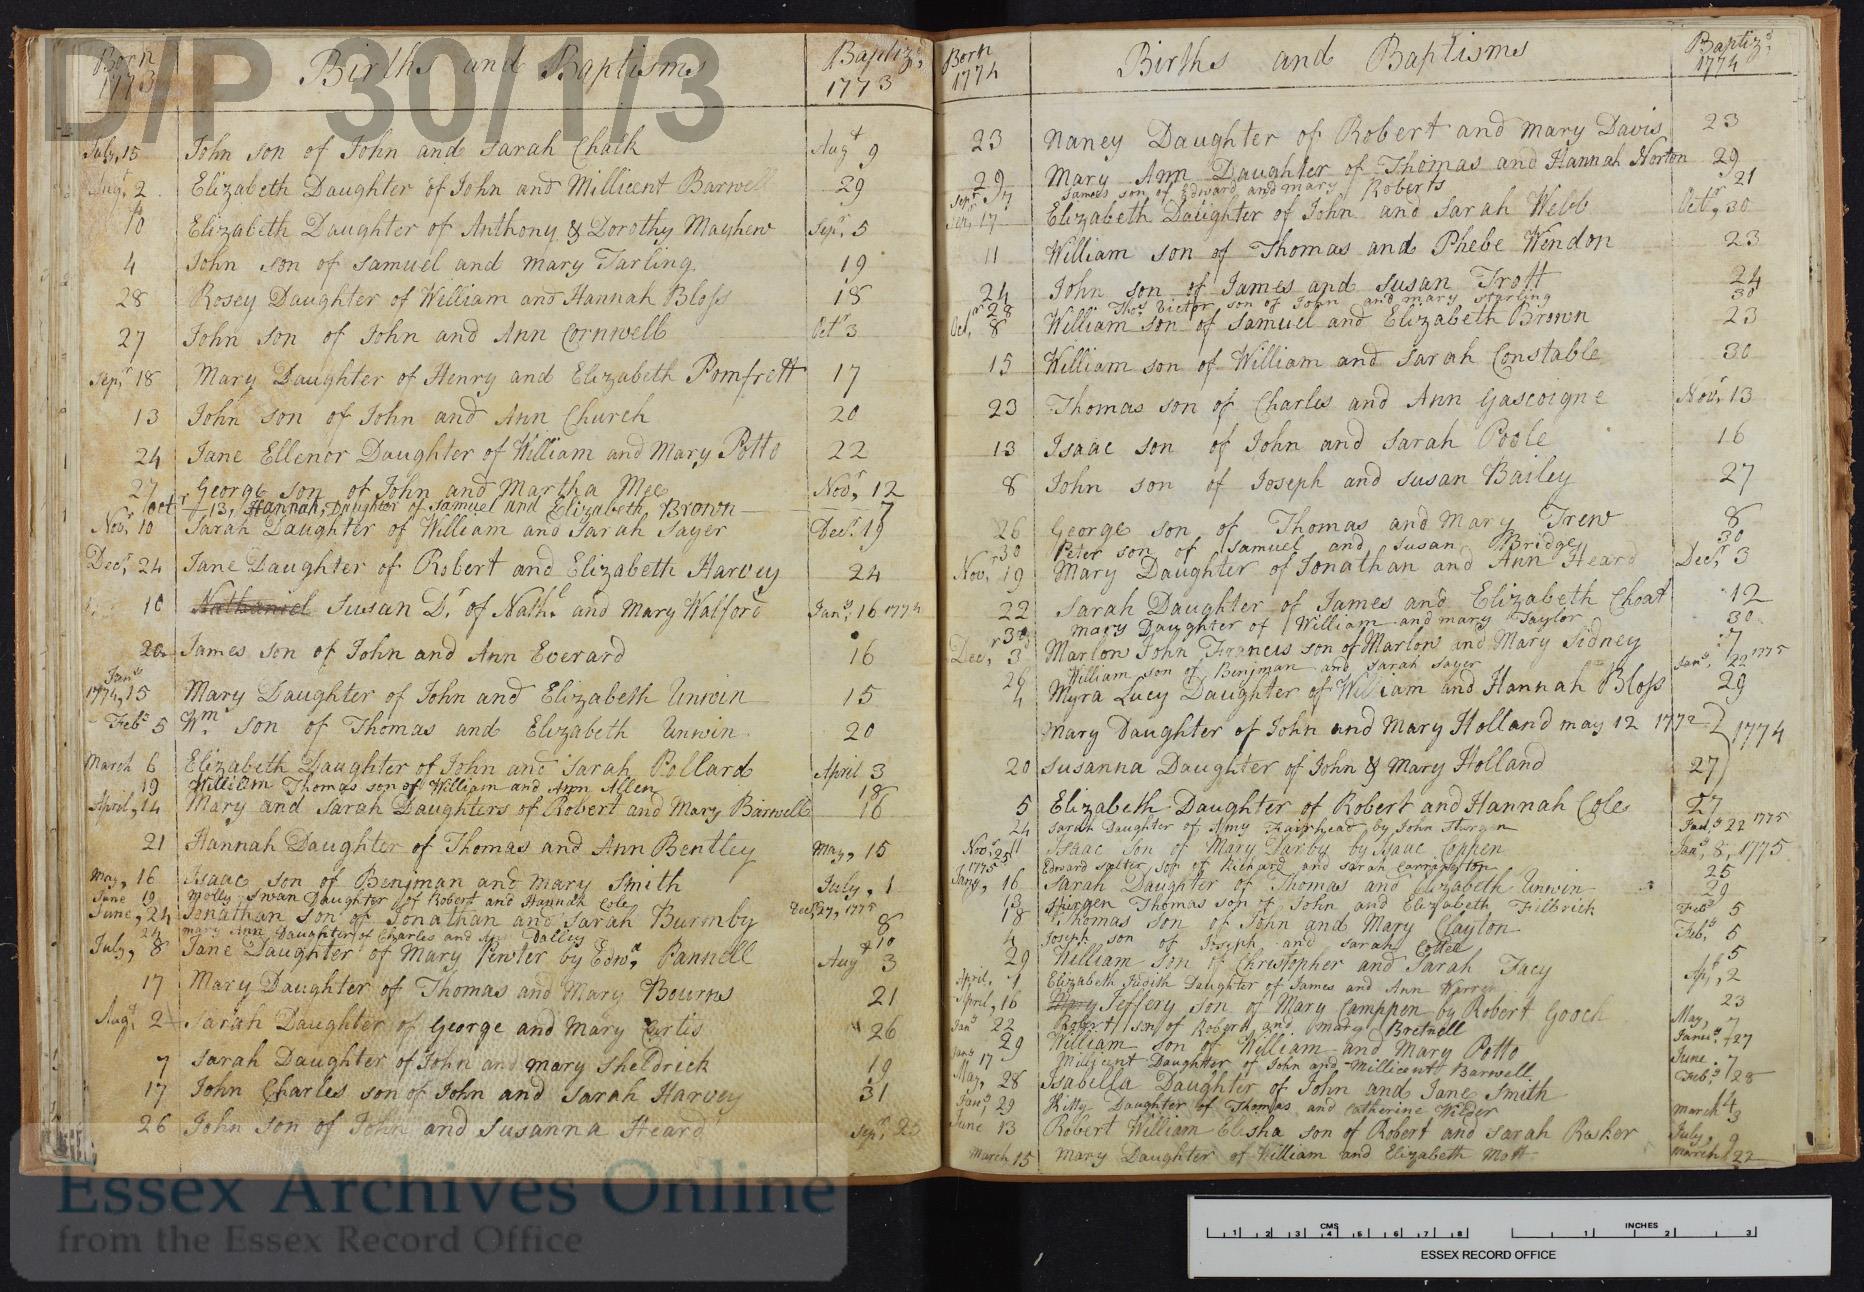 D/P 30/1/3
Born 1773 Births and Baptisms Baptizd. 1773
July, 15 John son of John and Sarah Chalk Augt 9
Augt. 2 Elizabeth Daughter of John and Millicent Barwell 29
10 Elizabeth Daughter of Anthony & Dorothy Mayhew Sepr. 5
4 John son of Samuel and Mary Tarling 19
28 Rosey Daughter of William and Hannah Bloss 18
27 John son of John and Ann Cornwell Octr 3
Sepr. 18 Mary Daughter of Henry and Elizabeth Pomfrett 17
13 John son of John and Ann Church 20
24 Jane Ellenor Daughter of William and Mary Potto 22
27 George son of John and Martha Mee Novr. 12
octr 13, Hannah, Daughter of Samuel and Elizabeth Brown 7
Novr. 10 Sarah Daughter of William and Sarah Sayer Decr. 19
Decr. 24 Jane Daughter of Robert and Elizabeth Harvey 24
10 Nathaniel Susan Dr. of Nathl. and Mary Walford Jany. 16 1774
20 James son of John and Ann Everard 16
Jany 1774, 15 Mary Daughter of John and Elizabeth Unwin 15
Feby 5 Wm. son of Thomas and Elizabeth Unwin 20
March 6 Elizabeth Daughter of John and Sarah Pollard April 3
19 William Thomas son of William and Ann Allen 18
April, 14 Mary and Sarah Daughters of Robert and Mary Barwell 16
21 Hannah Daughter of Thomas and Ann Bentley May, 15
May, 16 Isaac son of Benjman and Mary Smith July, 1
June 19 Molly Swan Daughter of Robert and Hannah Cole Decr 27, 1775
June, 24 Jonathan son of Jonathan and Sarah Burmby 8
24 Mary Ann Daughter of Charles and Ann Dallis 10
July, 8 Jane Daughter of Mary Pewter by Edwd. Pannell Augt 3
17 Mary Daughter of Thomas and Mary Bourns 21
Augt. 2 Sarah Daughter of George and Mary Curtis 26
7 Sarah Daughter of John and Mary Sheldrick 19
17 John Charles son of John and Sarah Harvey 31
26 John son of John and Susanna Heard Sepr. 25
Born 1774 Births and Baptisms Baptizd. 1774
23 Naney Daughter of Robert and Mary Davis 23
29 Mary Ann Daughter of Thomas and Hannah Norton 29
Sepr. 17 James son of Edward and Mary Roberts 21
17 Elizabeth Daughter of John and Sarah Webb Octr, 30
11 William son of Thomas and Phebe Wendon 23
24 John son of James and Susan Trott 24
28 Thos. Victor son of John and Mary Starling 30
Octr. 8 William son of Samuel and Elizabeth Brown 23
15 William son of William and Sarah Constable 30
23 Thomas son of Charles and Ann Gascoigne Novr. 13
13 Isaac son of John and Sarah Poole 16
8 John son of Joseph and Susan Bailey 27
26 George son of Thomas and Mary Trew 8
30 Peter son of Samuel and Susan Bridge 30
Novr. 19 Mary Daughter of Jonathan and Ann Heard Decr. 3
22 Sarah Daughter of James and Elizabeth Choat 12
30 Mary Daughter of William and Mary Taylor 30
Decr. 3 Marlow John Francis son of Marlow and Mary Sidney 7
26 William son of Benjman and Sarah Sayer Jany. 22 1775
4 Myra Lucy Daughter of William and Hannah Bloss 29
Mary Daughter of John and Mary Holland May 12 1772 1774
20 Susanna Daughter of John & Mary Holland 27
5 Elizabeth Daughter of Robert and Hannah Cole 27
24 Sarah Daughter of Amy Fairhead by John Sturgen Jany 22 1775
Novr. 11 Isaac son of Mary Tarby by Isaac Coppen Jany. 8, 1775
25 Edward Salter, son of Richard and Sarah Carrington 25
1775 Jany, 16 Sarah Daughter of Thomas and Elizabeth Unwin 29
13 Spurgen Thomas son of John and Elizabeth Filbrick Feby 5
18 Thomas son of John and Mary Clayton Feby. 5
4 Joseph son of Joseph and Sarah Cottee 5
29 William son of Christopher and Sarah Facy
April, 1 Elizabeth Judith Daughter of James and Ann Warren Apl, 2
April, 16 Mary Jeffery son of Mary Camppen by Robert Gooch 23
Jany 22 Robert son of Robert and Mary Bretnell May, 7
29 William son of William and Mary Potto 27
Jany 17 Millicent Daughter of John and Millicent Barwell June 7
May, 28 Isabella Daughter of John and Jane Smith Feby. 28
Jany, 29 Kitty Daughter of Thomas and Catherine Wilder March 4
June 13 Robert William Elisha son of Robert and Sarah Rasker July, 9
March 15 Mary Daughter of William and Elizabeth Mott March 22
Essex Archives Online
from the Essex Record Office
CMS
1 2 3 4 5 6 7 8
INCHES
1 2 3
ESSEX RECORD OFFICE